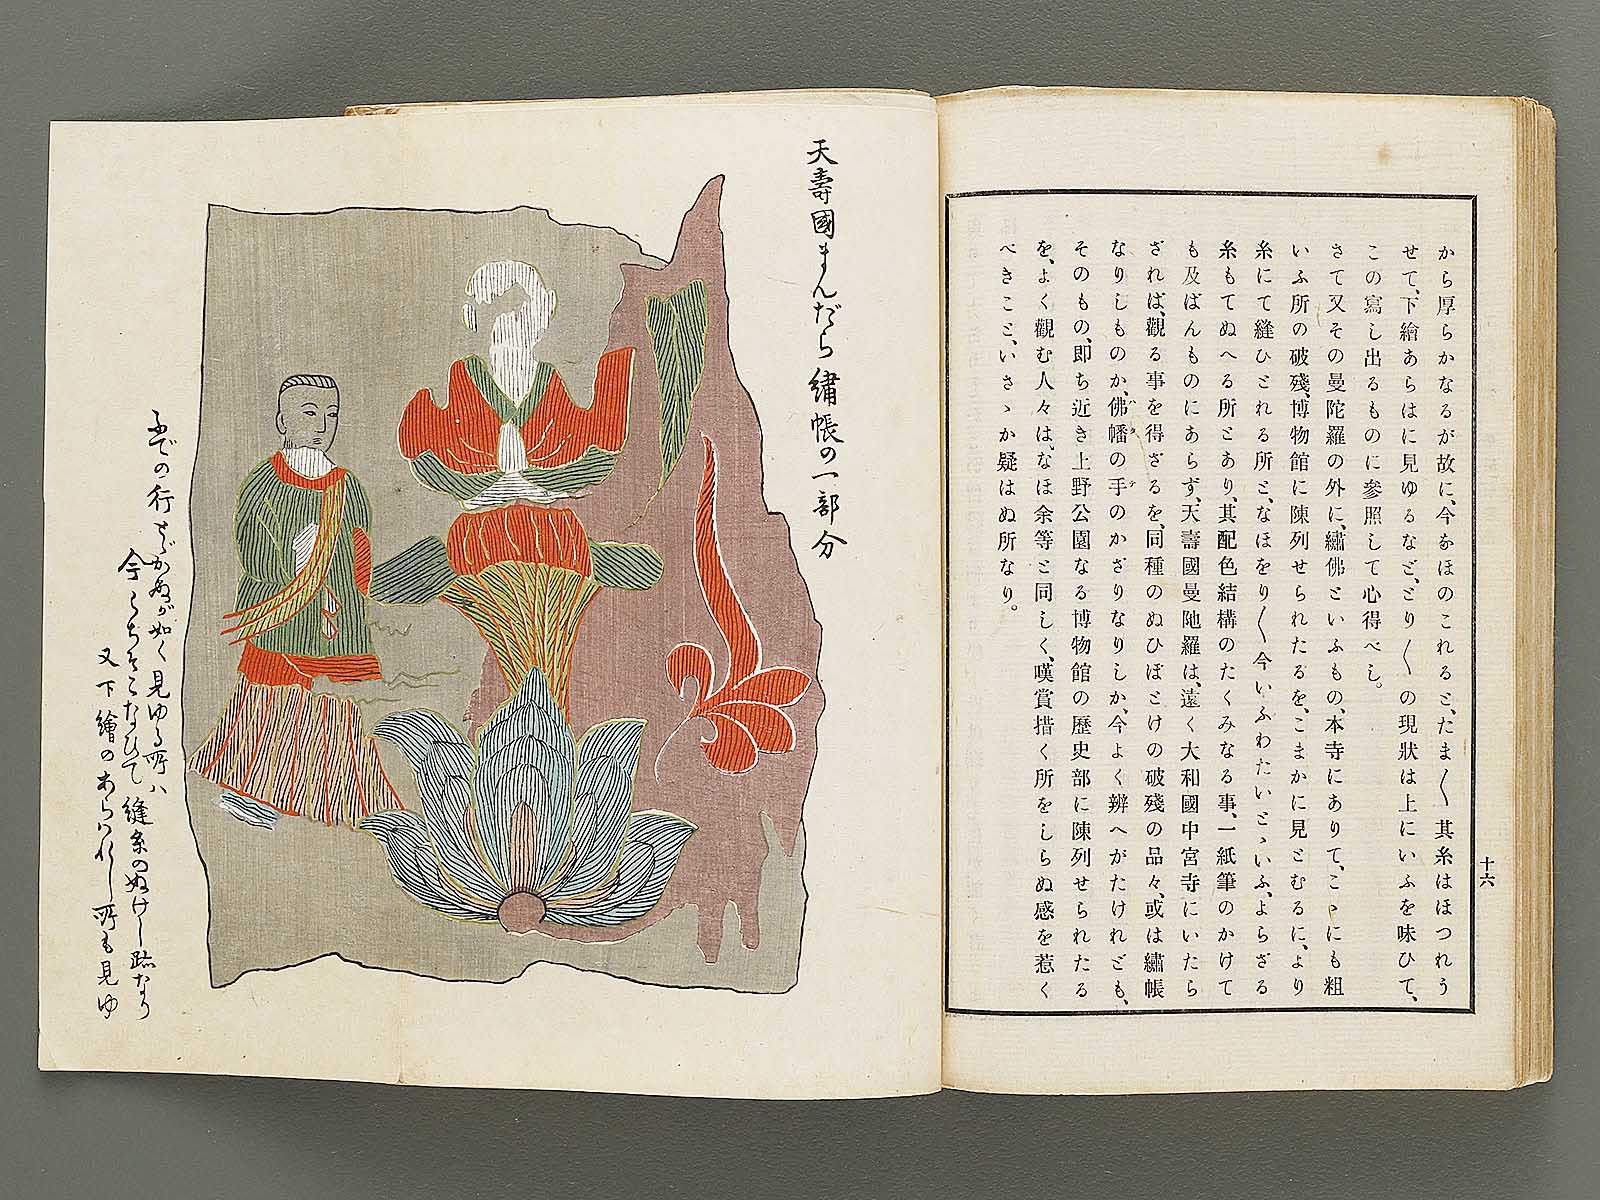 十六
から厚らかなるが故に、今なほのこれると、たま〳〵其糸はほつれう
せて、下繪あらはに見ゆるなど、とり〴〵の現狀は上にいふを味ひて、
この寫し出るものに參照して心得べし。
さて又その曼陀羅の外に、繡佛といふもの、本寺にありて、こゝにも粗
いふ所の破殘、博物館に陳列せられたるを、こまかに見とむるに、より
糸にて縫ひとれる所と、なほをり〳〵今いふわたいとゝいふ、よらざる
糸もてぬへる所とあり、其配色結構のたくみなる事、一紙筆のかけて
も及ばんものにあらず、天壽國曼陁羅は、遠く大和國中宮寺にいたら
ざれば、觀る事を得ざるを、同種のぬひぼとけの破殘の品々、或は繡帳
なりしものか、佛幡の手のかざりなりしか、今よく辨へがたけれども、
そのもの、即ち近き上野公園なる博物館の歷史部に陳列せられたる
を、よく觀む人々は、なほ余等と同しく、嘆賞措く所をしらぬ感を惹く
べきこと、いさゝか疑はぬ所なり。
天壽國まんだら繡帳の一部分
ふでの行とゞかぬが如く見ゆる所ハ
今くちそこなひて縫糸のぬけし跡なり
又下繪のあらはれし所も見ゆ